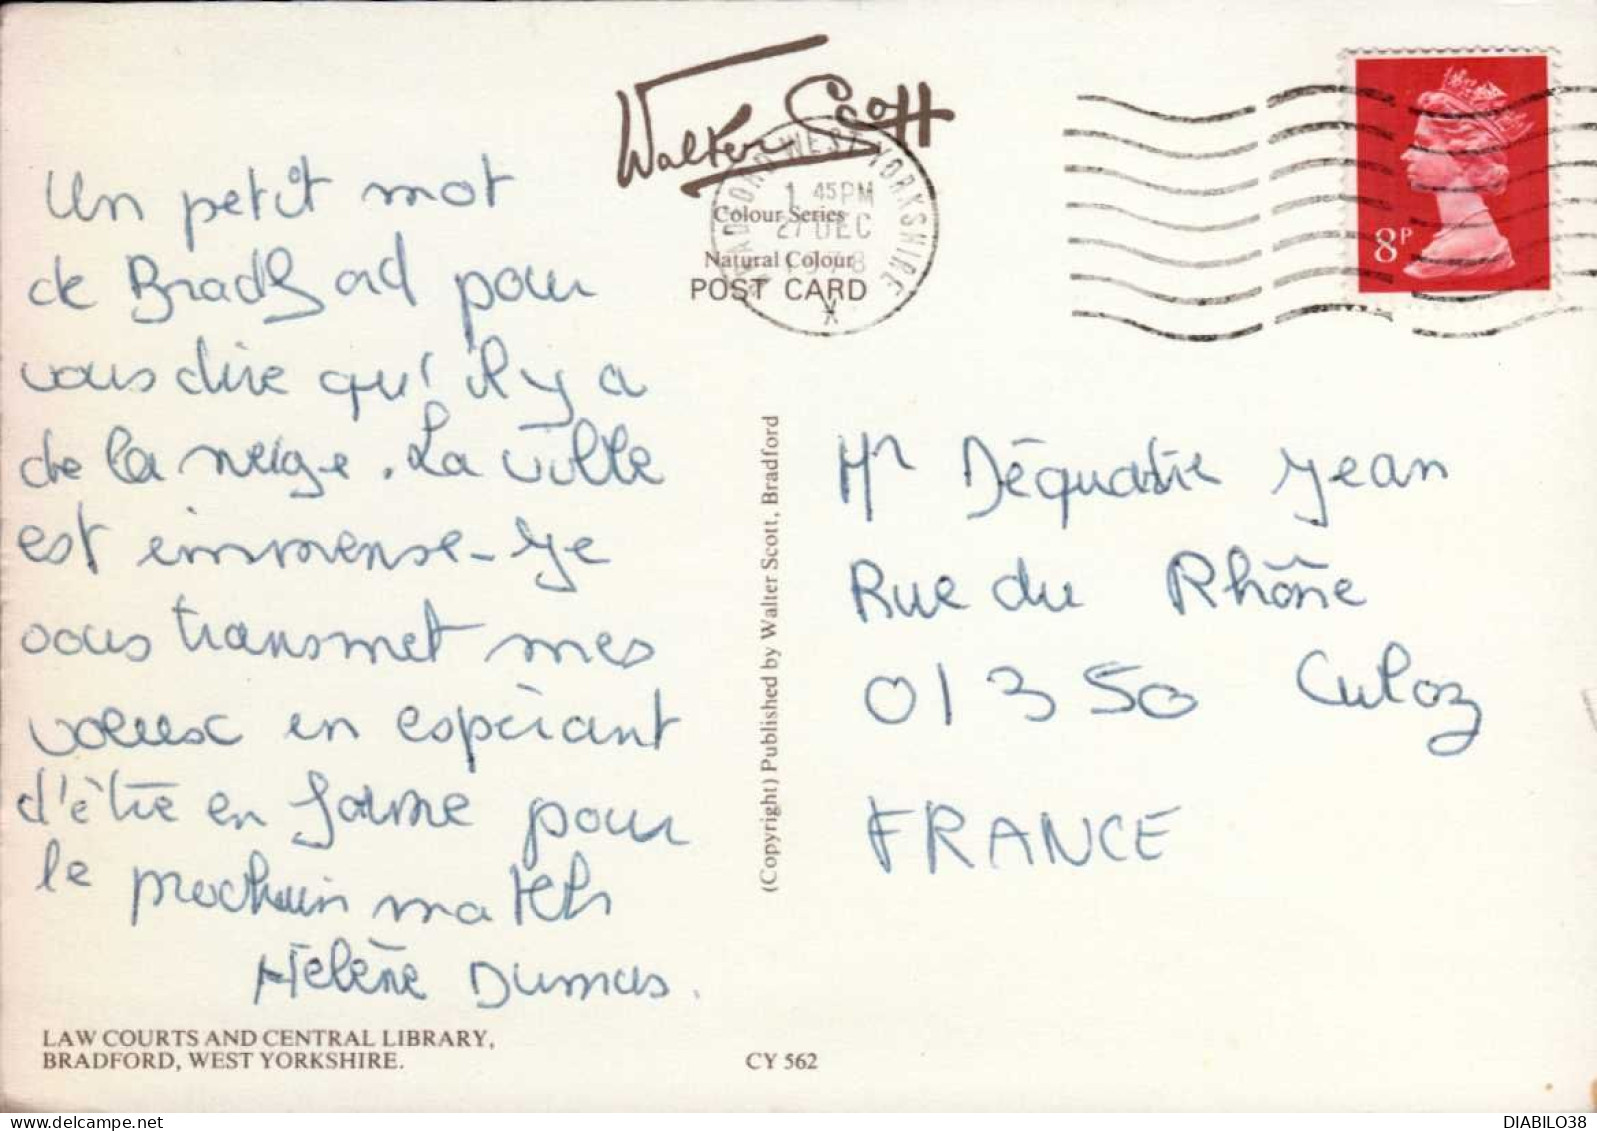 Walter Scott
BRADFORD WEST YORKSHIRE
1 45PM
27 DEC
1978
X
Colour Series
Natural Colour
POST CARD
8P
Un petit mot
de Bradford pour
vous dire qu'il y a
de la neige. La ville
est immense - Je
vous transmet mes
voeux en espérant
d'être en forme pour
le prochain match
Hélène Dumas.
LAW COURTS AND CENTRAL LIBRARY,
BRADFORD, WEST YORKSHIRE.
CY 562
(Copyright) Published by Walter Scott, Bradford
Mr Déquatre Jean
Rue du Rhône
01350 Culoz
FRANCE
DIABILO38